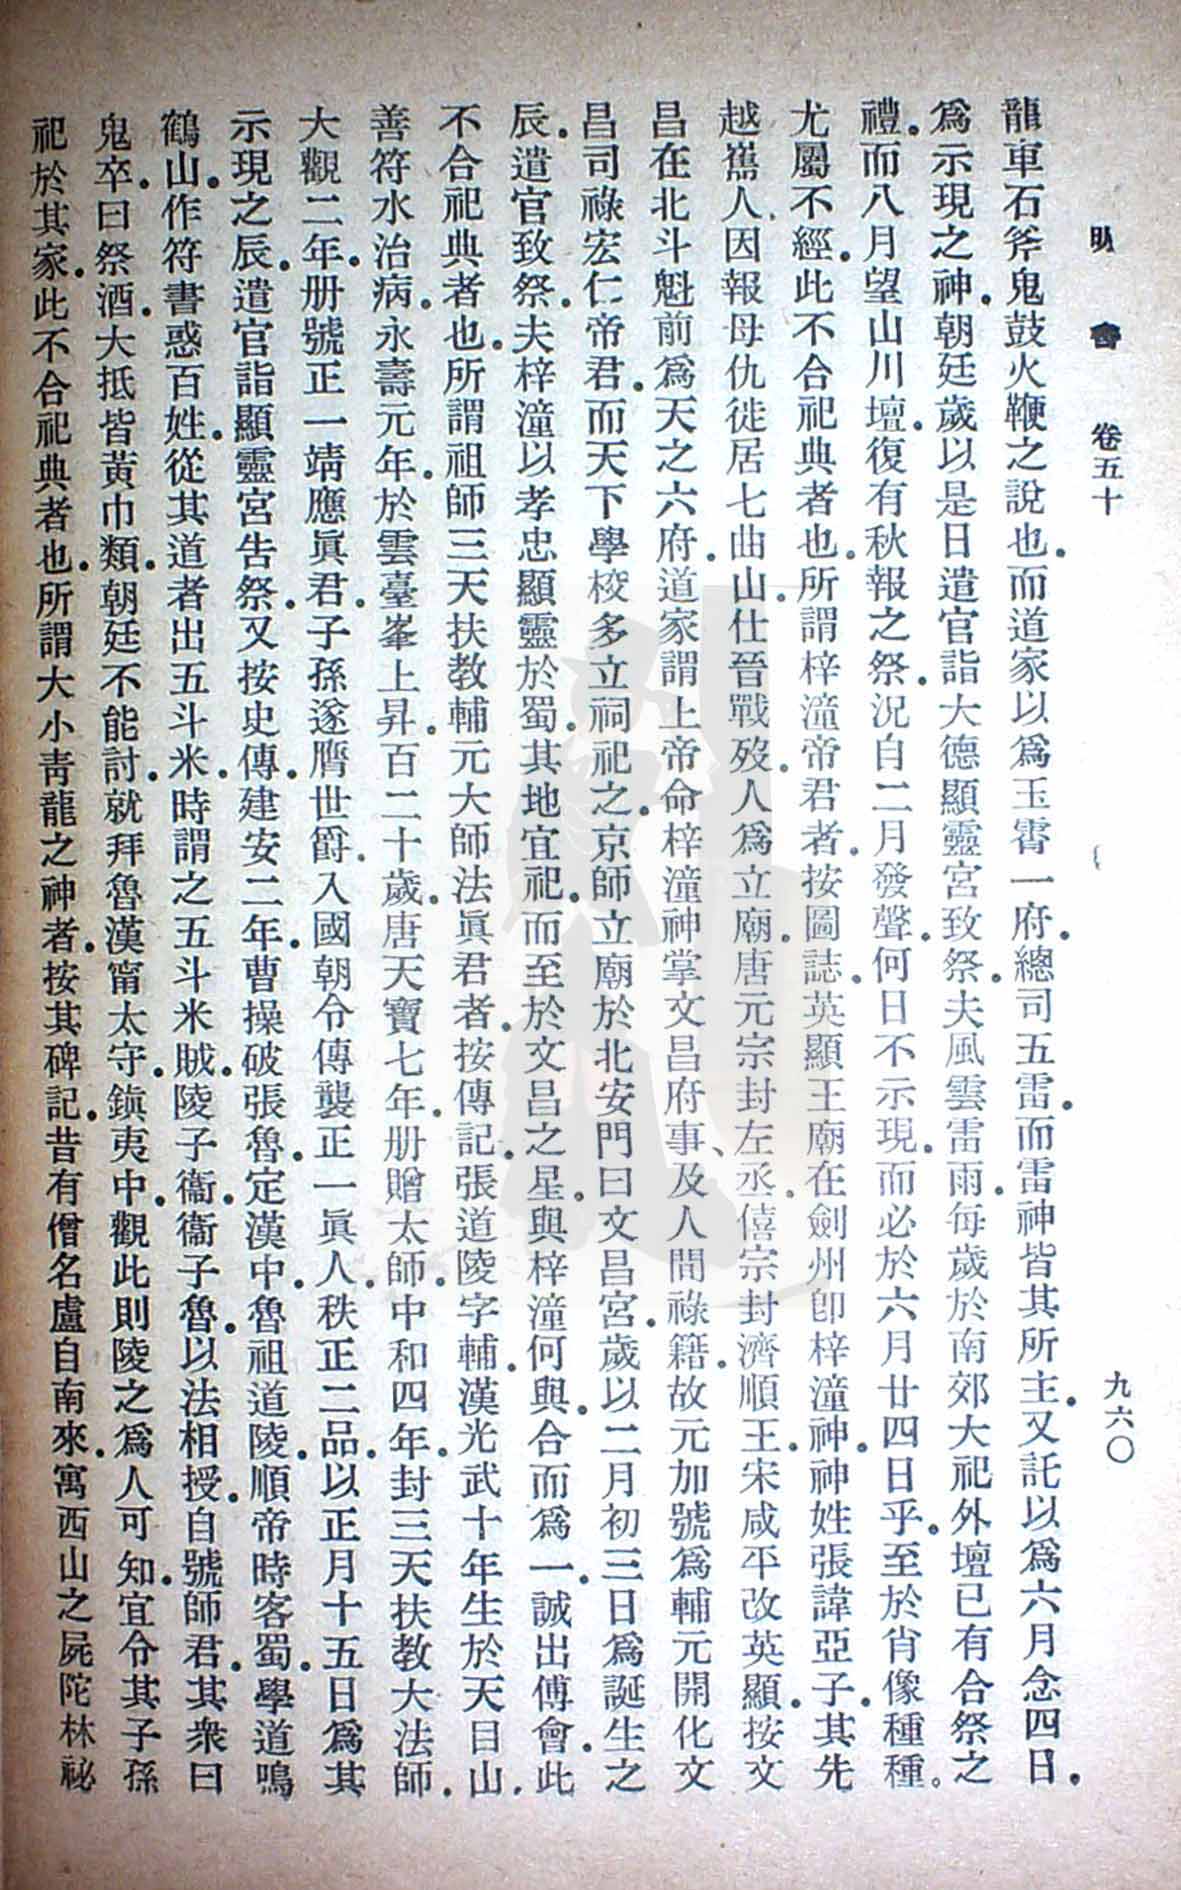 明會 卷五十 九六〇
龍車石斧鬼鼓火鞭之說也.而道家以爲玉霄一府.總司五雷.而雷神皆其所主.又託以爲六月念四日.
爲示現之神.朝廷歲以是日遣官詣大德顯靈宮致祭.夫風雲雷雨.每歲於南郊大祀外壇已有合祭之
禮.而八月望山川壇.復有秋報之祭.況自二月發聲.何日不示現.而必於六月廿四日乎.至於肖像種種。
尤屬不經.此不合祀典者也.所謂梓潼帝君者.按圖誌.英顯王廟在劍州卽梓潼神.神姓張諱亞子.其先
越嶲人.因報母仇徙居七曲山.仕晉戰歿.人爲立廟.唐元宗封左丞.僖宗封濟順王.宋咸平改英顯.按文
昌在北斗魁前爲天之六府.道家謂上帝命梓潼神掌文昌府事、及人間祿籍.故元加號爲輔元開化文
昌司祿宏仁帝君.而天下學校多立祠祀之.京師立廟於北安門曰文昌宮.歲以二月初三日爲誕生之
辰.遣官致祭.夫梓潼以孝忠顯靈於蜀.其地宜祀.而至於文昌之星.與梓潼何與.合而爲一.誠出傅會.此
不合祀典者也.所謂祖師三天扶教輔元大師法眞君者.按傳記.張道陵字輔.漢光武十年生於天目山.
善符水治病.永壽元年.於雲臺峯上昇.百二十歲.唐天寶七年.册贈太師.中和四年.封三天扶教大法師.
大觀二年.册號正一靖應眞君.子孫遂膺世爵.入國朝令傳襲正一眞人.秩正二品.以正月十五日爲其
示現之辰.遣官詣顯靈宮告祭.又按史傳.建安二年.曹操破張魯.定漢中.魯祖道陵.順帝時客蜀.學道鳴
鶴山.作符書惑百姓.從其道者出五斗米.時謂之五斗米賊.陵子衞.衞子魯.以法相授.自號師君.其衆曰
鬼卒.曰祭酒.大抵皆黃巾類.朝廷不能討.就拜魯漢甯太守.鎭夷中.觀此則陵之爲人可知.宜令其子孫
祀於其家.此不合祀典者也.所謂大小靑龍之神者.按其碑記.昔有僧名盧自南來.寓西山之屍陀林祕